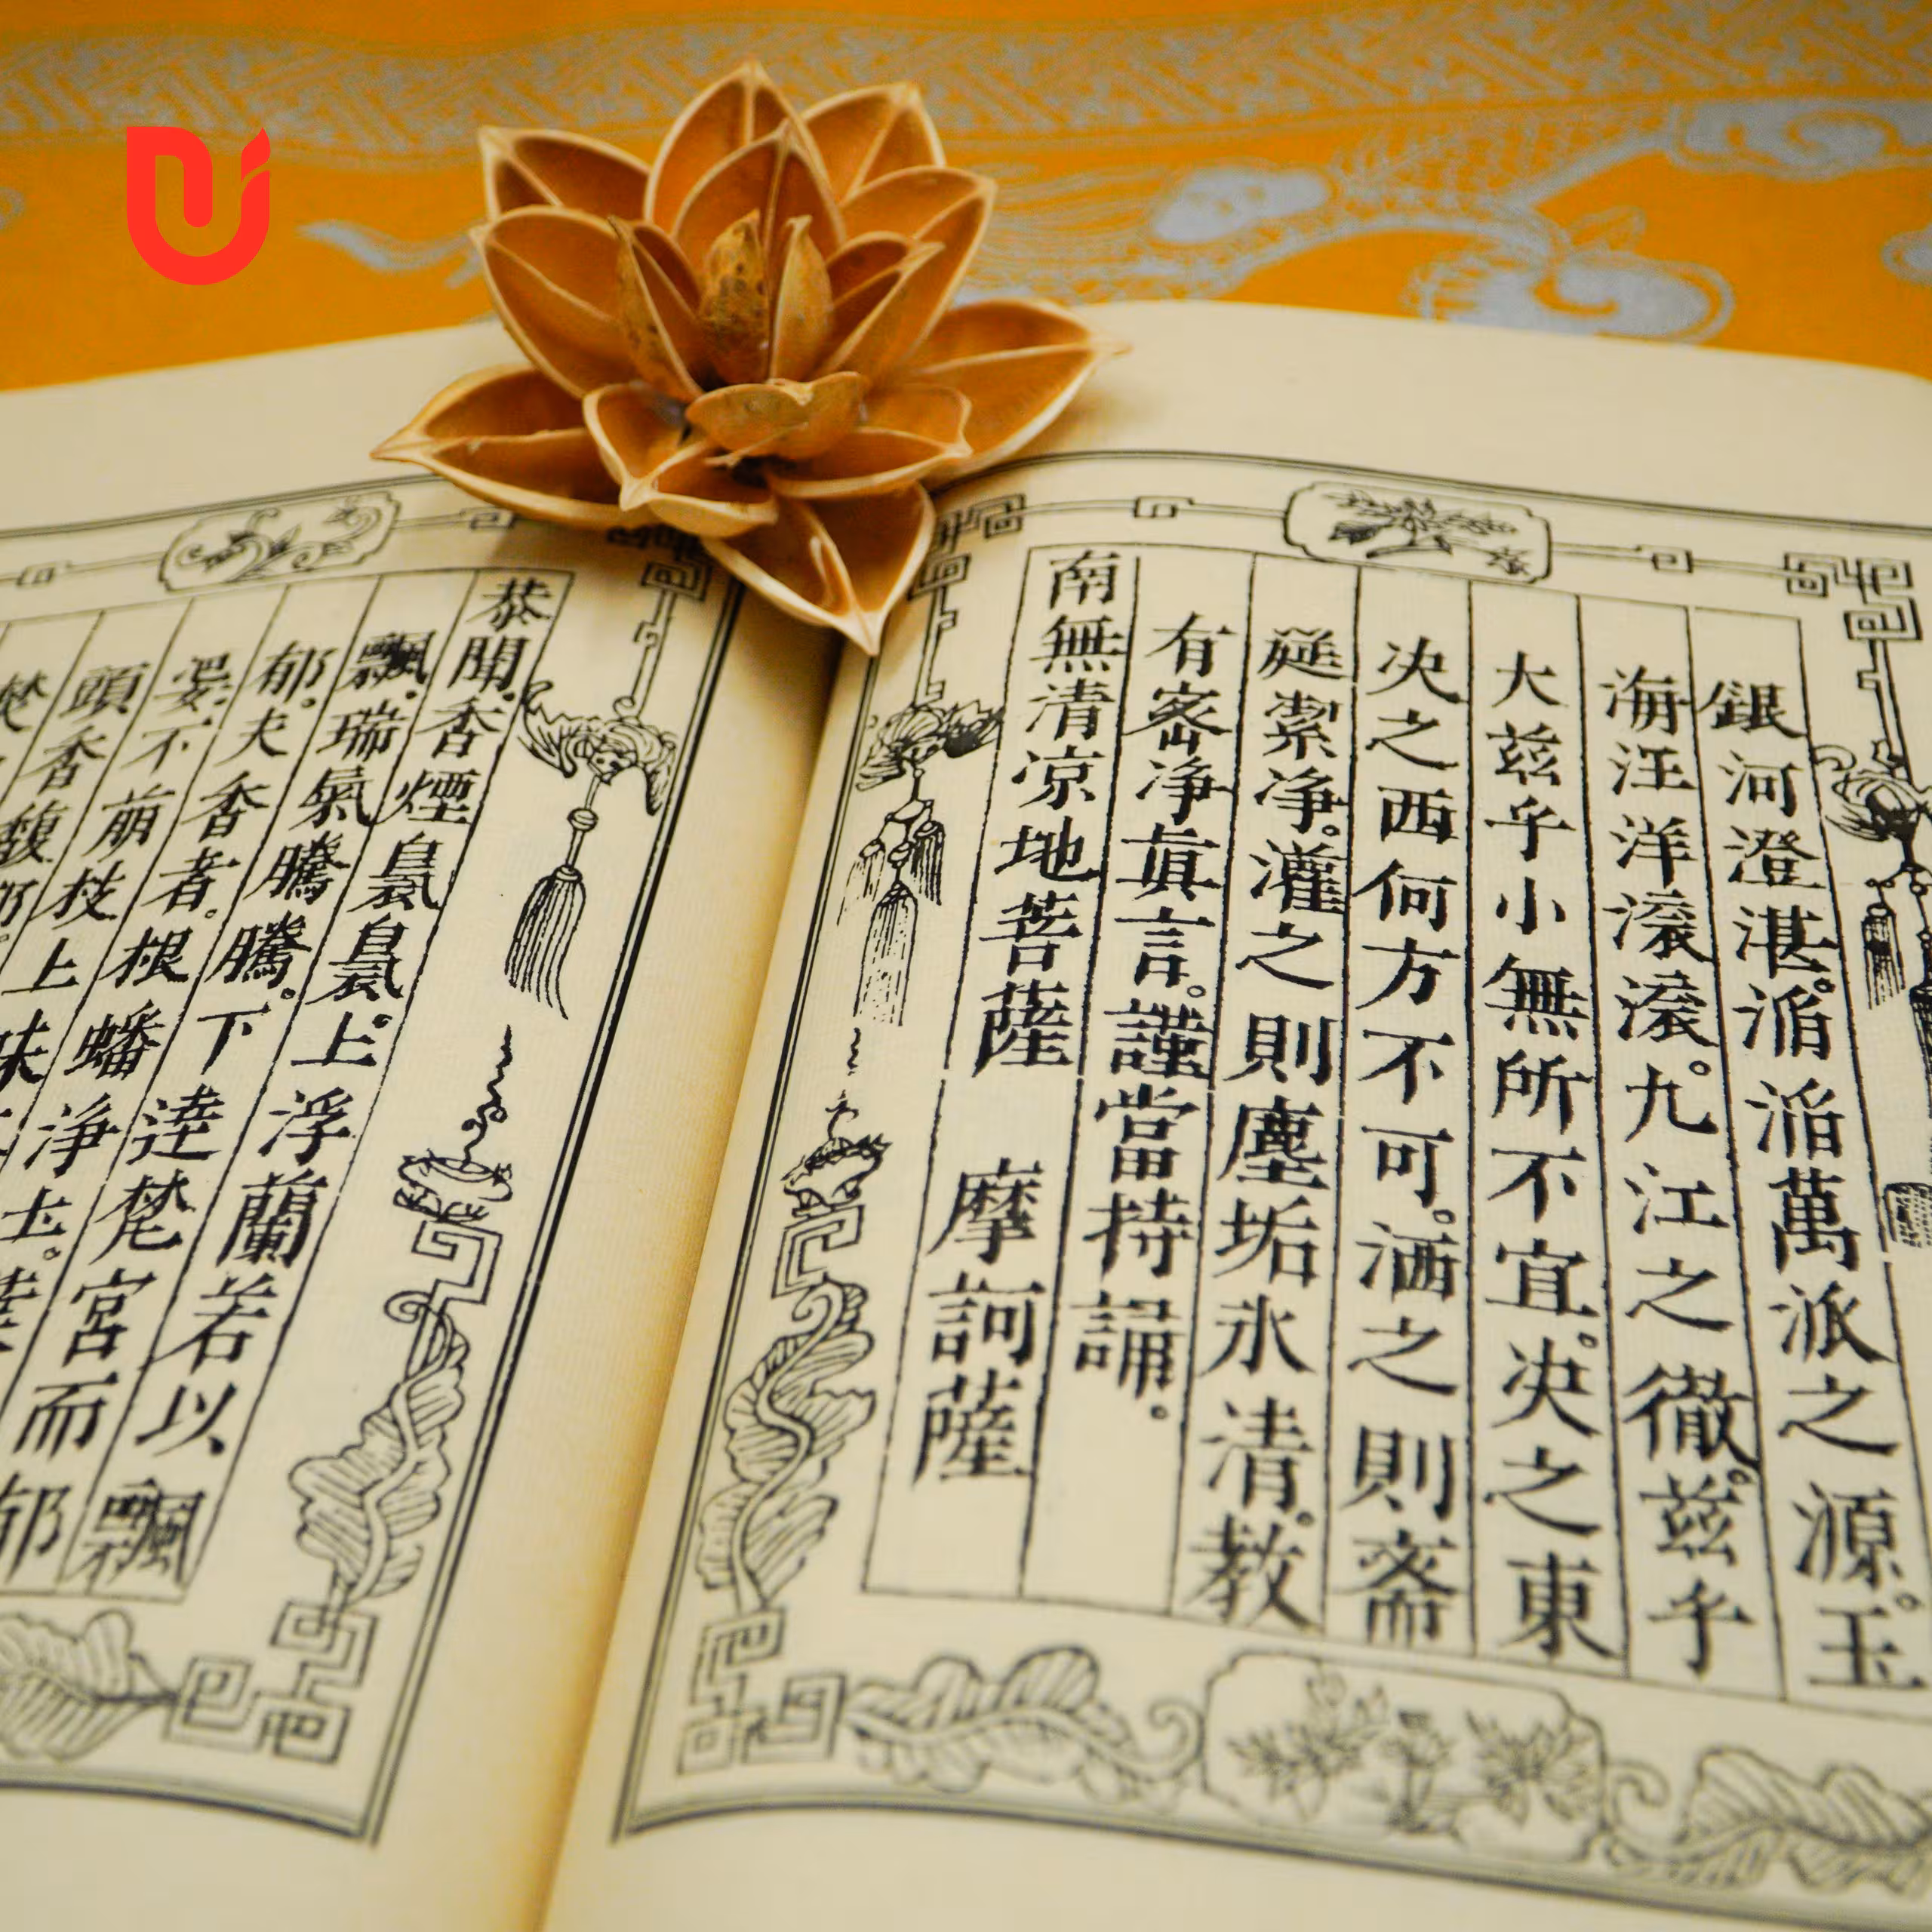 銀河澄湛。滔滔萬派之源。玉
海汪洋滾滾。九江之徹。茲乎
大茲乎小無所不宜。决之東
决之西何方不可。洒之則齋
筵絜淨。灌之則塵垢永清。教
有密淨眞言。謹當持誦。
南無清凉地菩薩 摩訶薩
恭聞。香煙上浮蘭若以飄
飄。瑞氣騰騰。下達梵宮而郁
郁。夫香者。根蟠淨土。
不萠枝上
頭香馥